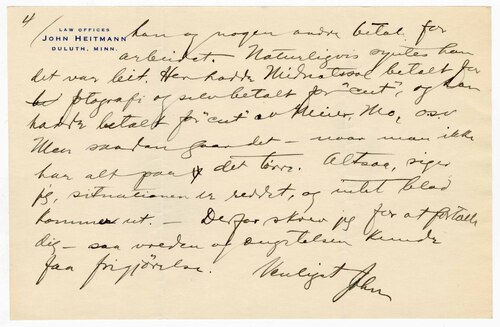 4/
LAW OFFICES
JOHN HEITMANN
DULUTH, MINN.
han og nogen andre betal. for
arbeidet. Naturligvis syntes han
det var leit. Her hadde Midnatssol betalt for
fotografi og selv betalt for "cut" og han
hadde betalt for "cut" av Meier, Mo, osv
Men saadan gaar det — naar man ikke
har alt paa det tørre. Altsaa, siger
jeg, situationen er reddet, og intet blad
kommer ut. — Derfor skrev jeg for at fortælle
dig — saa vreden og ængstelsen kunde
faa frigjørelse. Venligst John